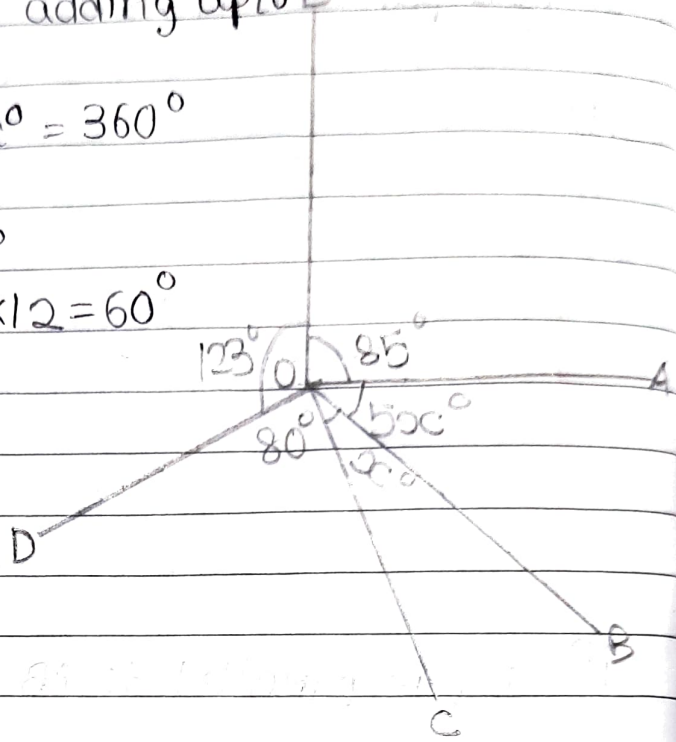 adding upto
° = 360°
×12 = 60°
123°
85°
O
A
5x°
80°
x°
D
B
C